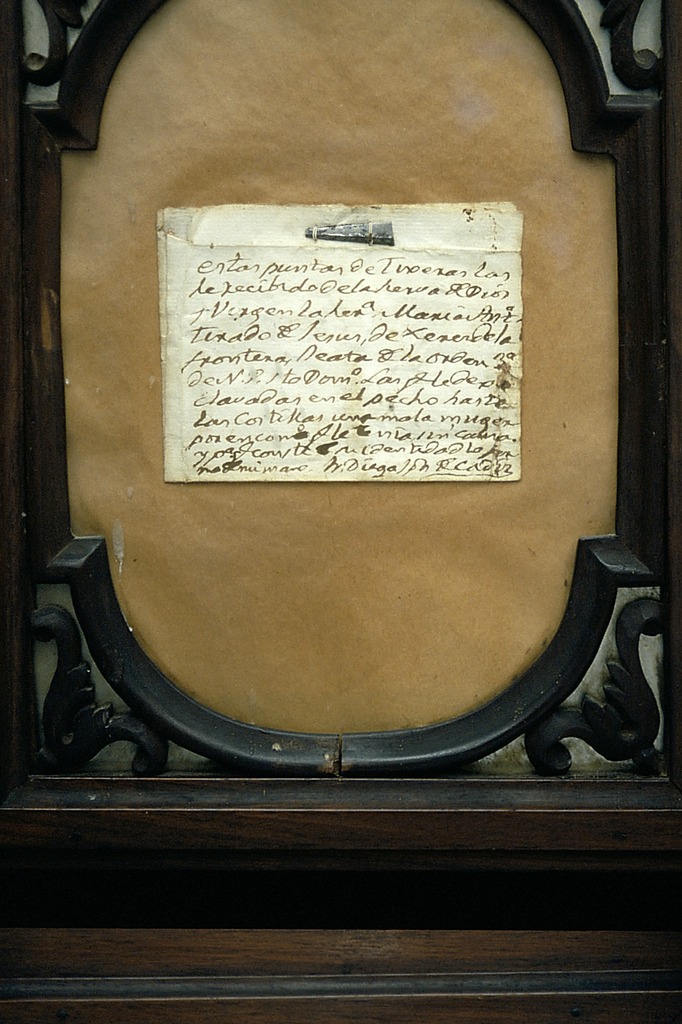 estas puntas de Tixeras las
he recibido de la sierva de Dios
y Virgen la herª. Maria Antª.
tirado de Jesus, de Xerez de la
frontera, Beata de la orden 3ª
de N. P. Sto Domº. Las
clavadas en el pecho hasta
las Costillas una mala muger
por encono q le tenia sin causa.
y pª q conste identidad lo
Fr. Diego Jph de Cadiz